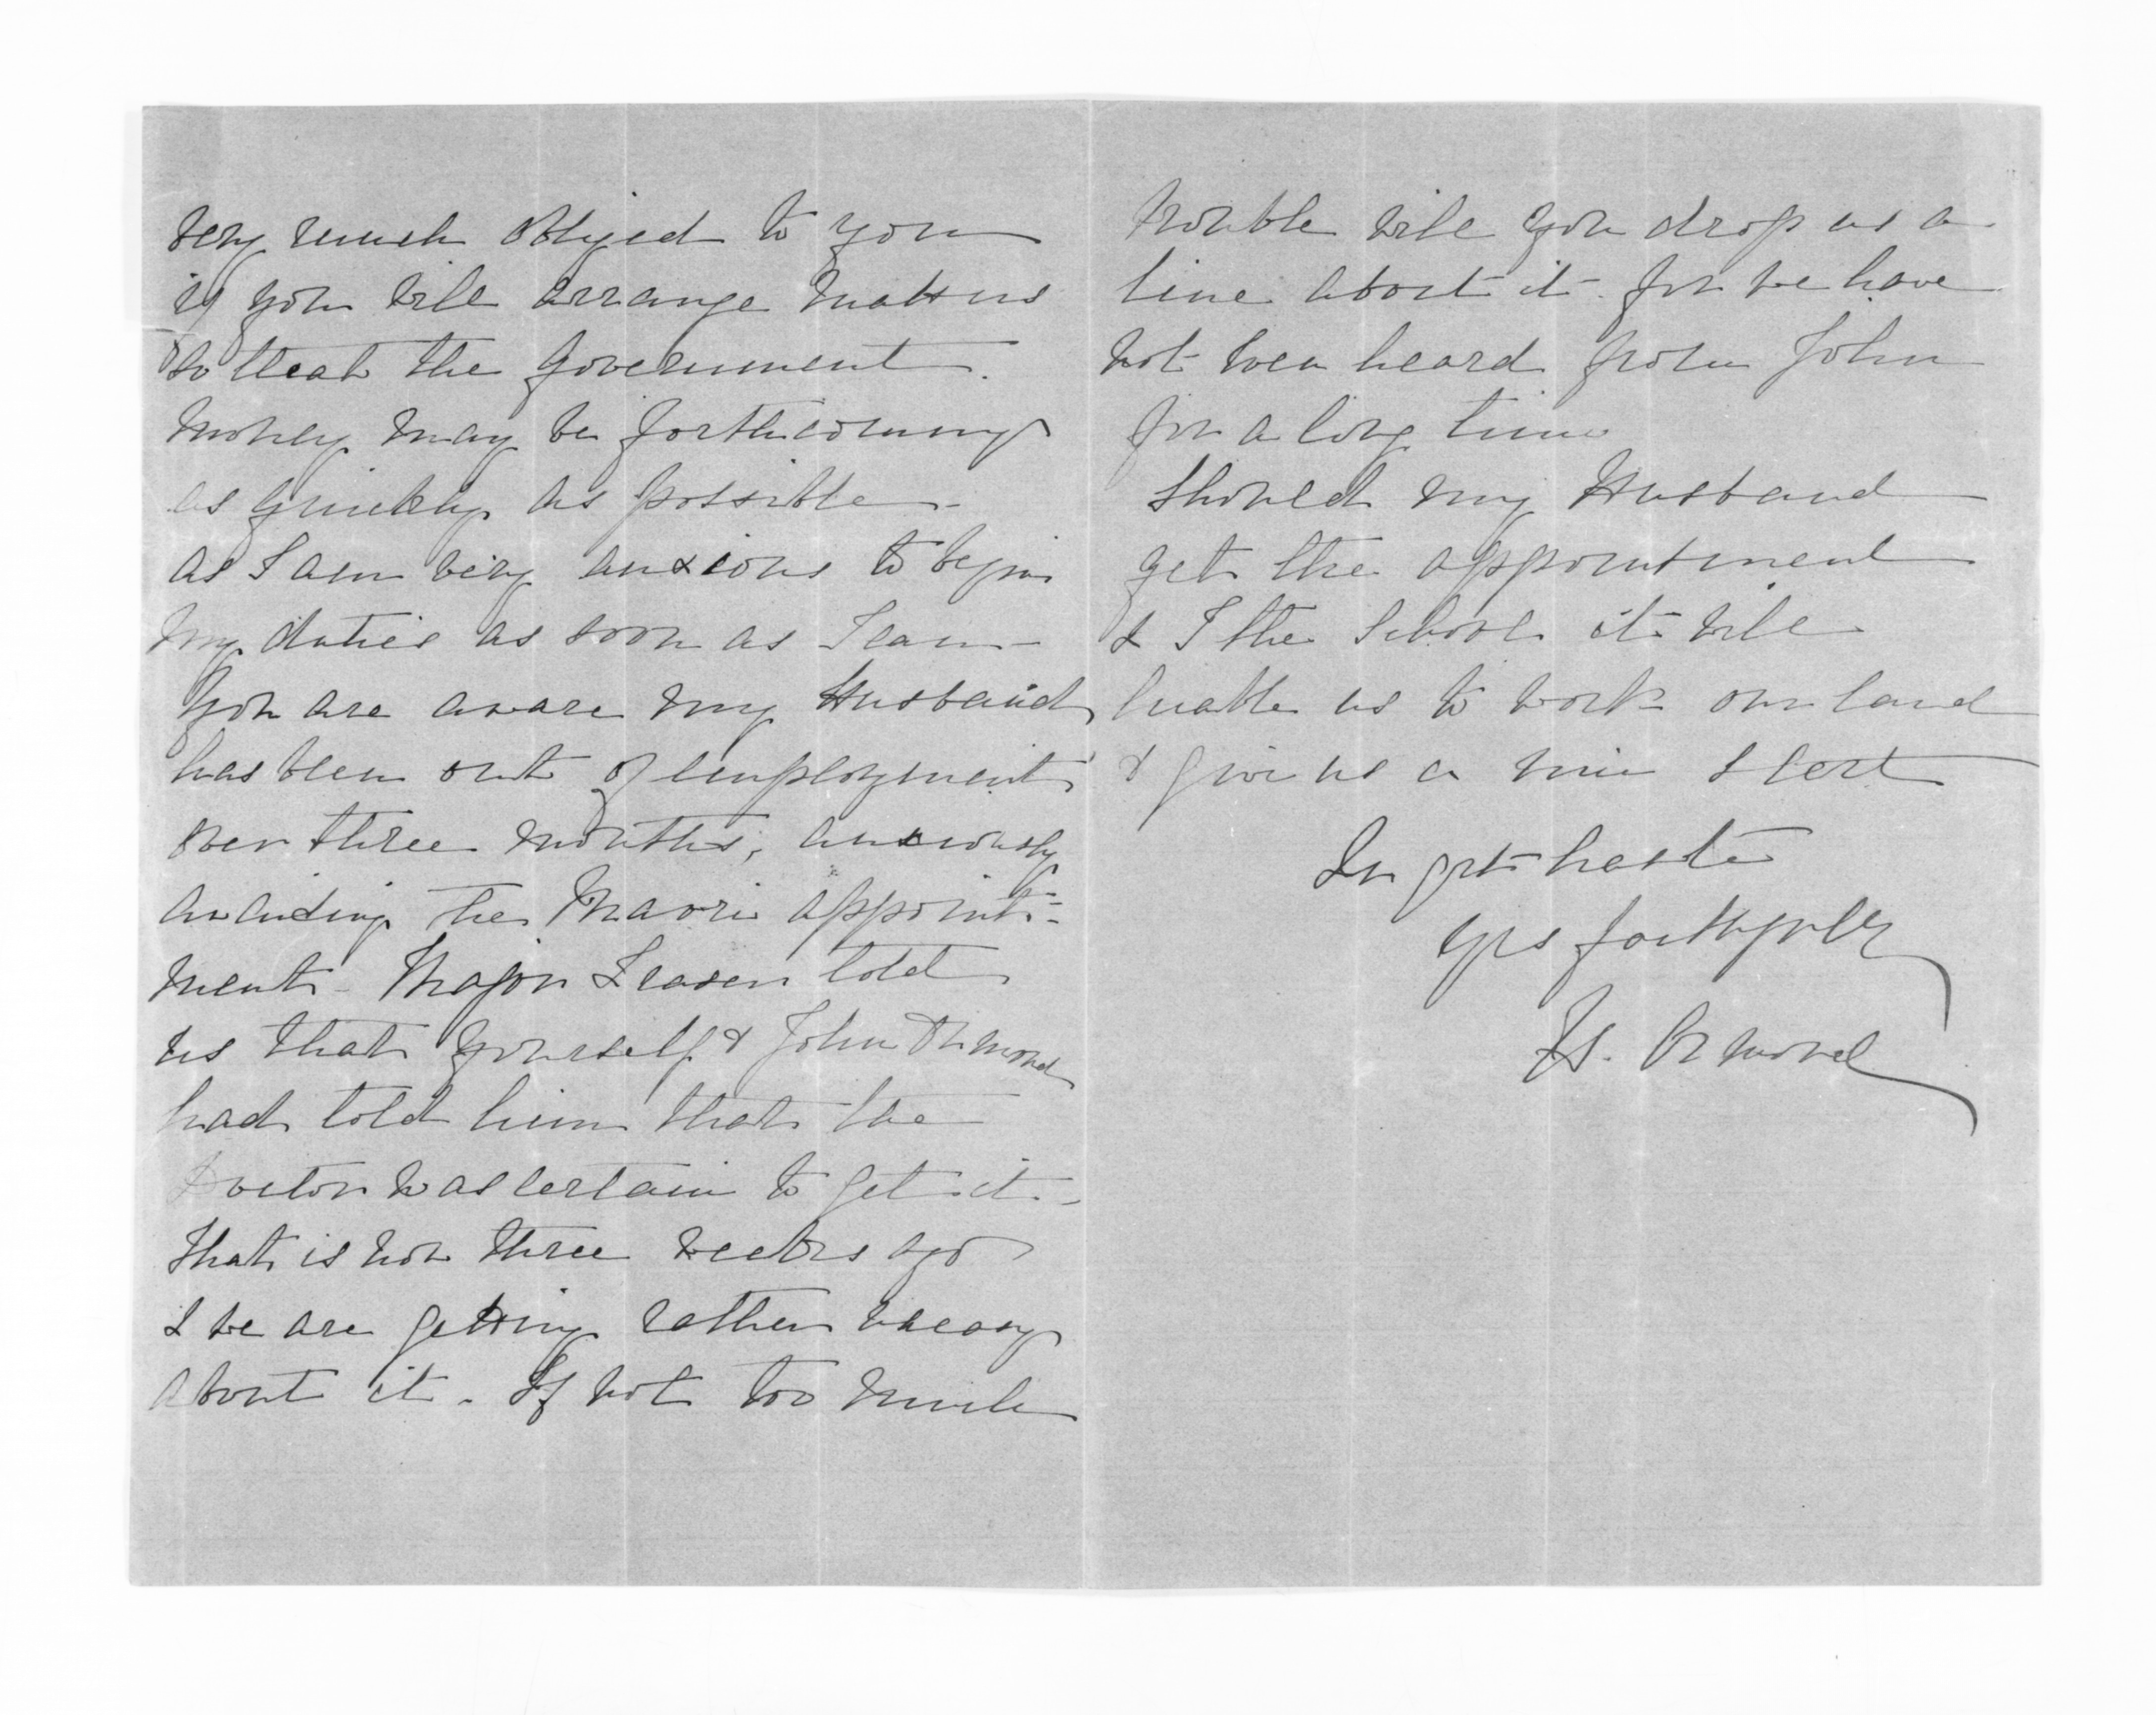 very much obliged to you
if you will arrange matters
so that the Government
money may be forthcoming
as quickly as possible -
as I am very anxious to begin
my duties as soon as I can -
You are aware my Husband
has been out of employment
over three months, anxiously
awaiting the Maori appoint=
ment - Major Fraser told
us that yourself & John Ormond
had told him that the
Doctor was certain to get it -
that is now three weeks ago
& we are getting rather uneasy
about it. If not too much
trouble will you drop us a
line about it for we have
not even heard from John
for a long time
Should my Husband
get the appointment
& I the School it will
enable us to work our land
& give us a nice start
In grt haste
Yrs faithfully
Ormond